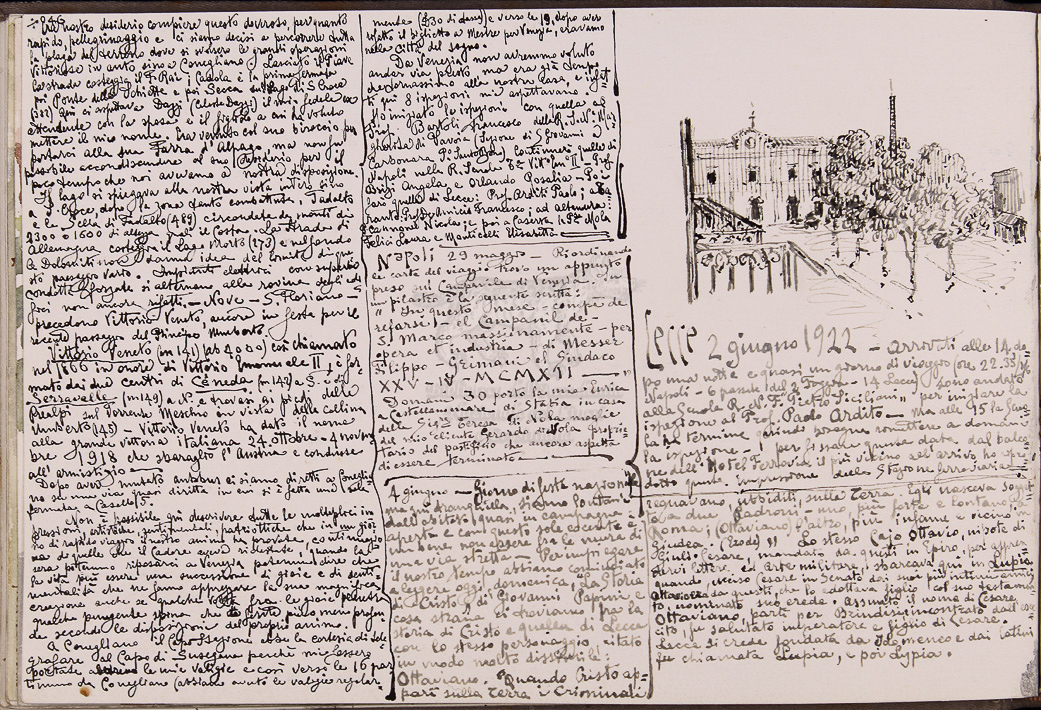 nostro desiderio compiere questo doveroso, per quanto
rapido, pellegrinaggio e ci siamo decisi a percorrere tutta
la plaga del terreno dove si svolsero le grandi operazioni
Vittoriose in auto sino a Conegliano. Lasciato il Piave
la strada costeggia il F. Rai; Cadola è la prima fermata
poi Ponte delle e poi Secca sul Lago di S. Croce
(382) Qui ci aspettava Dazzi (Celeste Dazzi) il mio fedele ex
attendente con la sposa e il figliolo a cui ha voluto
mettere il mio nome. Era venuto col suo biroccio per
portarci alla sua Farra d'Alpago, ma non fu
possibile accondiscendere al suo desiderio per il
poco tempo che noi avevamo a nostra disposizione.
Il lago si spiegava alla nostra vista intero sino
a S. Croce, dopo la zona tanto combattuta, Fadalto
e la Sella di Fadalto (489) circondata da monti di
2300 o 1600 di altezza, qual il Costa. La strada di
Allemagna costeggia il Lago Morto (273) e nel fondo
le Dolomiti non danno idea del limite di que
sto paesaggio vario. Impianti elettrici con superbe
condotte forzate si alternano alle rovine degli edi
fici non ancora rifatti. - Nove - S. Floriano -
precedono Vittorio Veneto, ancora in festa per il
recente passaggio del Principe Umberto.
Vittorio Veneto (m 141) (ab 4000) così chiamato
nel 1866 in onore di Vittorio Emanuele II, è for
mato dei due centri di Ceneda (m 142) a S. e di
Serravalle (m 149) a N. e trovasi ai piedi delle
Prealpi sul Torrente Meschio in vista della collina
Umberto (145) - Vittorio Veneto ha dato il nome
alla grande vittoria italiana 24 ottobre - 4 novem
bre 1918 che sbaragliò l'Austria e condusse
all'armistizio
Dopo aver mutato autobus ci siamo diretti a Coneglia
no su una via quasi diritta in cui si è fatta una sola
fermata, a
Non è possibile qui descrivere tutte le molteplici im
pressioni, artistiche, sentimentali, patriottiche che in un gior
no di rapido viaggio il nostro animo ha provato, continuaggio
ne di quelle che il Cadore aveva ridestate, quando la
sera potemmo riposarci a Venezia potemmo dire che
la vita può essere una successione di gioie e di senti
mentalità che ne fanno apprezzare la sua magnifica
creazione anche se qualche fra le gioie
qualche pungente spina che ferite più o meno profon
de secondo le disposizioni del proprio animo.
A Conegliano il Capo Stazione ebbe la cortesia di tele
grafare al Capo di Susegana perchè mi fossero
portate le mie valigie e così verso le 16 par
timmo da Conegliano (abbiamo avuto le valigie regolar-
mente (£30 di tassa) e verso le 19, dopo aver
rifatto il biglietto a Mestre per Venezia, eravamo
nella Città del sogno.
Da Venezia non avremmo voluto
andar via presto, ma era già tempo
che tornassimo alla nostra casa, e infat
ti qui 8 ispezioni mi aspettavano.
Ho iniziato le ispezioni con quella al
Prof. Bartoli Francesco della R. S. N. Mar
gherita di Savoia (Sezione di S. Giovanni a
Carbonara, Continuerò quelle di
Napoli nella R. Scuola Vitt. Em. II - Prof.
Brigi Angela e Orlando Rosalia - Poi
sarà quella di Lecce: Prof. Arditi Paolo; a Ta
ranto, Prof. Francesco; ad Altamura:
Nicola; e poi a Caserta, Nola
Felici Laura e Monticelli Elisabetta
Napoli 29 maggio - Riordinando
le carte del viaggio trovo un appunto
preso sul Campanile di Venezia. In
un pilastro è la seguente scritta:
" In questo mese - compie de
refarsi - el Campanil de -
S. Marco massimamente - per
opera et industria di Messer
Filippo - Grimani el Sindaco
XXV - IV - MCMXII "
Domani 30 porto la mia Enrica
a Castellammare di Stabia in casa
della Sig.ra Teresa Di Nola moglie
del mio cliente Gerardo Di Nola proprie-
tario del pastificio che ancora aspetta
di essere terminato
4 giugno - Giorno di festa nazionale
ma qui tranquillo, siamo lontani
dall'abitato, quasi in campagna
aperta e con questo sole cocente è
un bene non essere fra le mura di
una via stretta - Per impiegare
il nostro tempo abbiamo cominciato
a leggere oggi, domenica, la Storia
di Cristo, di Giovanni Papini e
cosa strana ci troviamo, fra la
storia di Cristo e quella di Lecce
con lo stesso personaggio citato
in modo molto dissimile:
Ottaviano. "Quando Cristo ap-
parì sulla Terra i Criminali
Lecce 2 giugno 1922 - arrivati alle 14 do-
po una notte e quasi un giorno di viaggio (ore 22.35
Napoli - 6 pranzo del 2 - 14 Lecce) sono andato
alla Scuola R. N. F. "Pietro Siciliani" per iniziare la
ispezione al Prof. Paolo Ardito. - Ma alle 15 la scuo
la ha termine quindi bisogna rimettere a domani
la ispezione - e per fissare questa data dal balco
ne dell'Hotel Ferrovia, il più vicino all'arrivo ho ripro
dotto questa impressione dello Stagione ferroviario
regnavano ubbiditi, sulla Terra. Egli nasceva sogget
to a due Padroni - uno più forte e lontano
a Roma; (Ottaviano) l'altro, più infame e vicino in
Giudea. (Erode) " - Lo stesso Cajo Ottavio, nipote di
Giulio Cesare, mandato da questi in Epiro, per appren
dervi lettere, ed arte militare, sbarcava qui in Lupia
quando, ucciso Cesare in Senato dai suoi più intimi amici
Ottaviano da questi, che lo adottava figlio col suo testamen
to, nominato suo erede. Assunto il nome di Cesare
Ottaviano, Roma, incontrato dall'eser
cito, fu salutato imperatore e figlio di Cesare.
Lecce si crede fondata da Idomeneo e dai latini
fu chiamata Lupia, e poi Lypia.